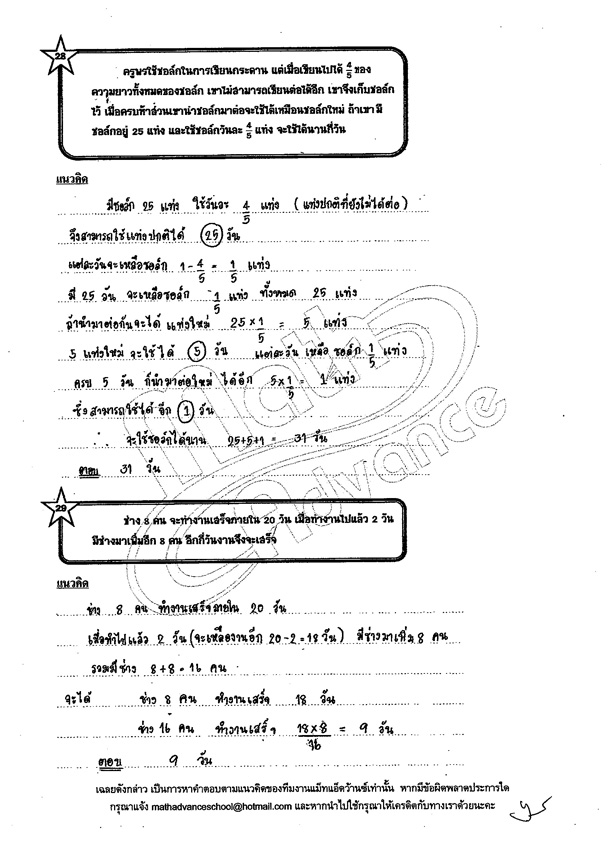 28
ครูพรใช้ชอล์กในการเขียนกระดาน แต่เมื่อเขียนไปได้ 4/5 ของ
ความยาวทั้งหมดของชอล์ก เขาไม่สามารถเขียนต่อได้อีก เขาจึงเก็บชอล์ก
ไว้ เมื่อครบห้าส่วนเขานำชอล์กมาต่อจะใช้ได้เหมือนชอล์กใหม่ ถ้าเขามี
ชอล์กอยู่ 25 แท่ง และใช้ชอล์กวันละ 4/5 แท่ง จะใช้ได้นานกี่วัน
แนวคิด
มีชอล์ก 25 แท่ง ใช้วันละ 4/5 แท่ง (แท่งปกติที่ยังไม่ได้ต่อ)
จึงสามารถใช้แท่งปกติได้ 25 วัน
แต่ละวันจะเหลือชอล์ก 1-4/5 = 1/5 แท่ง
มี 25 วัน จะเหลือชอล์ก 1/5 แท่ง ทั้งหมด 25 แท่ง
ถ้านำมาต่อกันจะได้ แท่งใหม่ 25×1/5 = 5 แท่ง
5 แท่งใหม่ จะใช้ได้ 5 วัน แต่ละวัน เหลือ ชอล์ก 1/5 แท่ง
ครบ 5 วัน ก็นำมาต่อใหม่ ได้อีก 5×1/5 = 1 แท่ง
ซึ่งสามารถใช้ได้อีก 1 วัน
∴ จะใช้ชอล์กได้นาน 25+5+1 = 31 วัน
ตอบ 31 วัน
Math Advance
29
ช่าง 8 คน จะทำงานเสร็จภายใน 20 วัน เมื่อทำงานไปแล้ว 2 วัน
มีช่างมาเพิ่มอีก 8 คน อีกกี่วันงานจึงจะเสร็จ
แนวคิด
ช่าง 8 คน ทำงานเสร็จภายใน 20 วัน
เมื่อทำไปแล้ว 2 วัน (จะเหลืองานอีก 20-2=18 วัน) มีช่างมาเพิ่ม 8 คน
รวมมีช่าง 8+8=16 คน
จะได้ ช่าง 8 คน ทำงานเสร็จ 18 วัน
ช่าง 16 คน ทำงานเสร็จ 18×8/16 = 9 วัน
ตอบ 9 วัน
เฉลยดังกล่าว เป็นการหาคำตอบตามแนวคิดของทีมงานแม็ทแอ็ดว้านซ์เท่านั้น หากมีข้อผิดพลาดประการใด
กรุณาแจ้ง mathadvanceschool@hotmail.com และหากนำไปใช้กรุณาให้เครดิตกับทางเราด้วยนะคะ